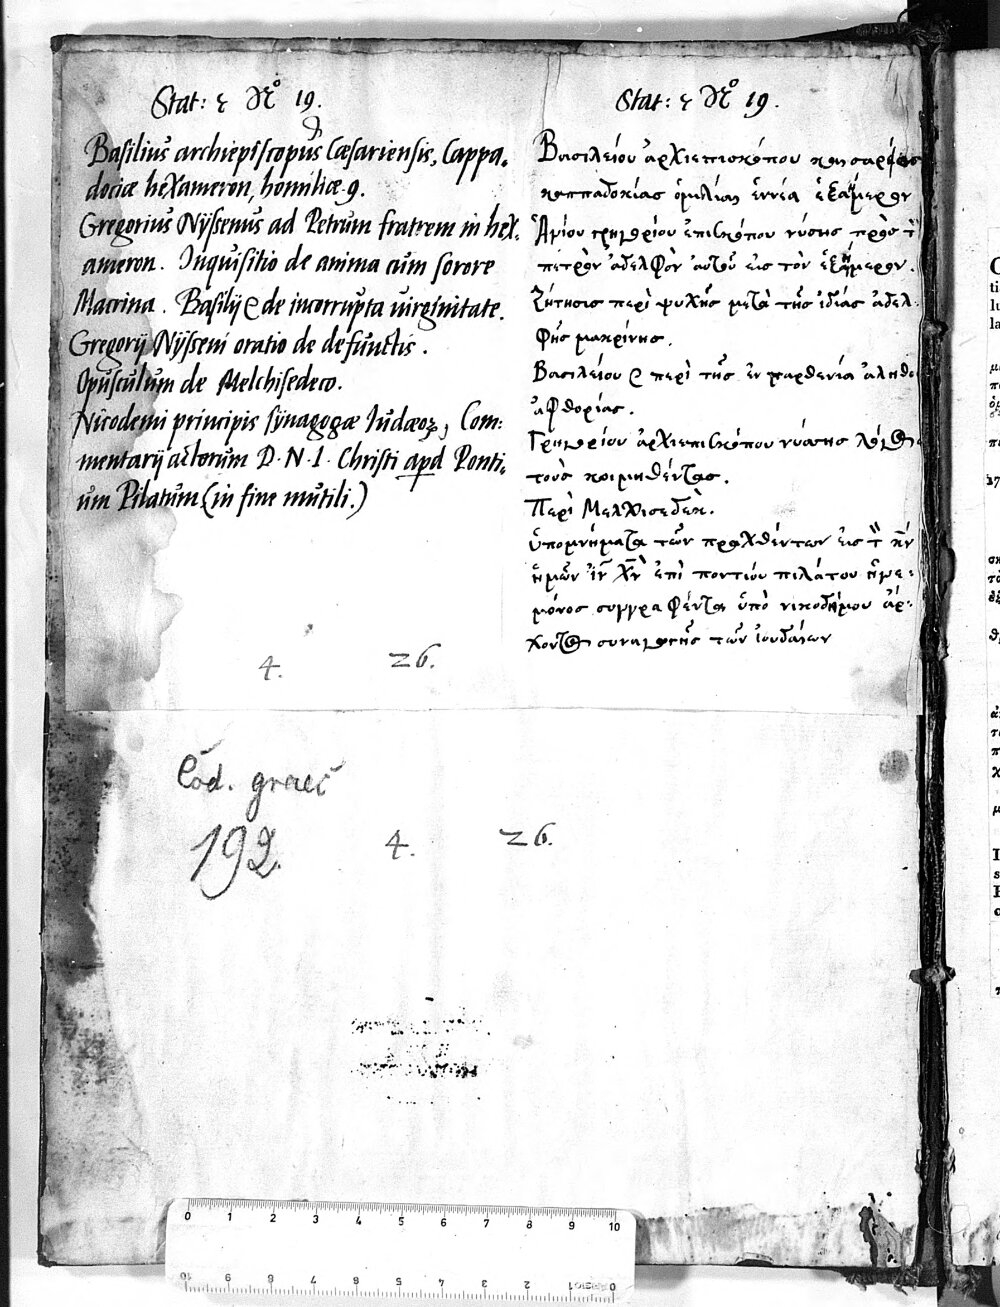 Stat: ε No 19.
Basilius archiepiscopus Cæsariensis, Cappa,
dociæ hexameron, homiliæ 9.
Gregorius Nyssenus ad Petrum fratrem in hex,
ameron. Inquisitio de anima cum sorore
Macrina. Basilij de incorrupta virginitate.
Gregorij Nysseni oratio de defunctis.
Opusculum de Melchisedeco.
Nicodemi principis synagogæ Iudæoꝝ, Com:
mentarij actorum D. N. I. Christi apd Ponti,
um Pilatum (in fine mutili.)
4. 26.
Stat: ε No 19.
Βασιλείου ἀρχιεπισκόπου καισαρείας
καππαδοκίας ὁμιλίαι ἐννέα ἑξαήμερον
Ἁγίου γρηγορίου ἐπισκόπου νύσης πρὸς τ̀
πέτρον ἀδελφὸν αὐτοῦ εις τὸν ἑξαήμερον.
Ζήτησις περὶ ψυχῆς μετὰ τῆς ἰδίας ἀδελ,
φῆς μακρίνης.
Βασιλείου περὶ τῆς ἐν παρθενία ἀληθοῦς
ἀφθορίας.
Γρηγορίου ἀρχιεπισκόπου νύσσης λόγος
τοὺς κοιμηθέντας.
Περὶ Μελχισεδέκ.
ὑπομνήματα τῶν πραχθέντων εἰς τ̀ κ̅ν̅
ἡμῶν ἰ̅ν̅ χ̅ν̅ ἐπὶ ποντίου πιλάτου ἡγε:
μόνος συγγραφέντα ὑπὸ νικοδήμου ἄρ:
χοντος συναγωγῆς τῶν ἰουδαίων
Cod. graec
192.
4. 26.
0 1 2 3 4 5 6 7 8 9 10
10 9 8 7 6 5 4 3 2 1 0